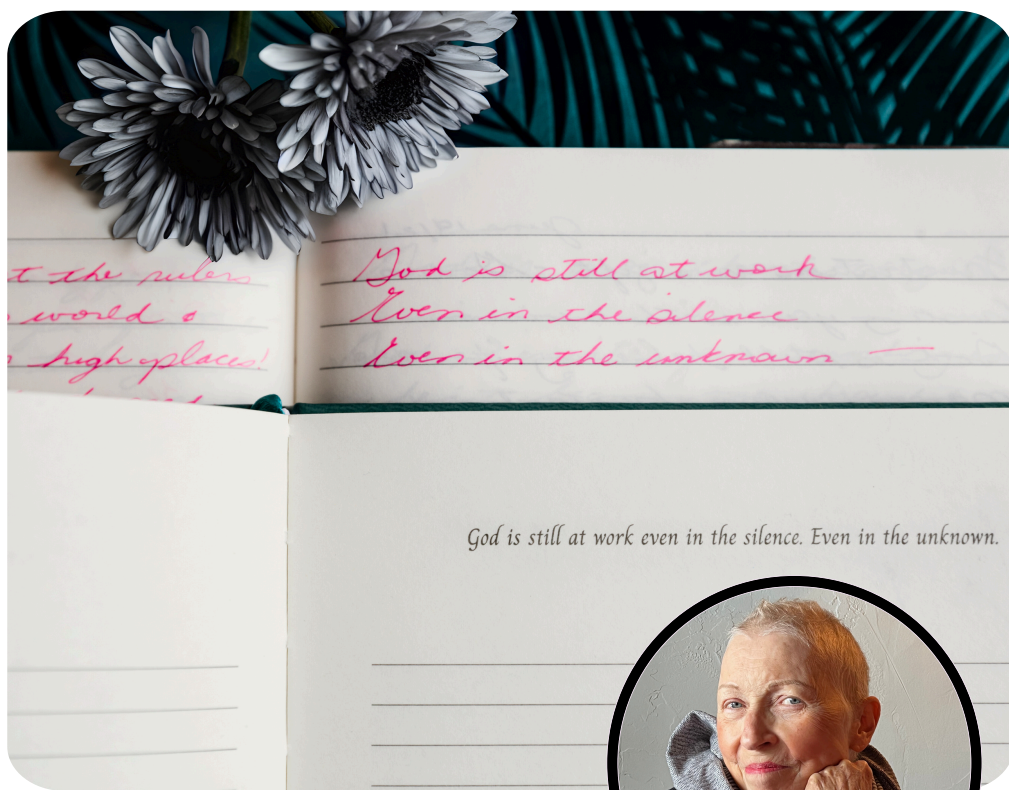 t the rulers
world &
high places!
God is still at work
Even in the silence
Even in the unknown —
God is still at work even in the silence. Even in the unknown.